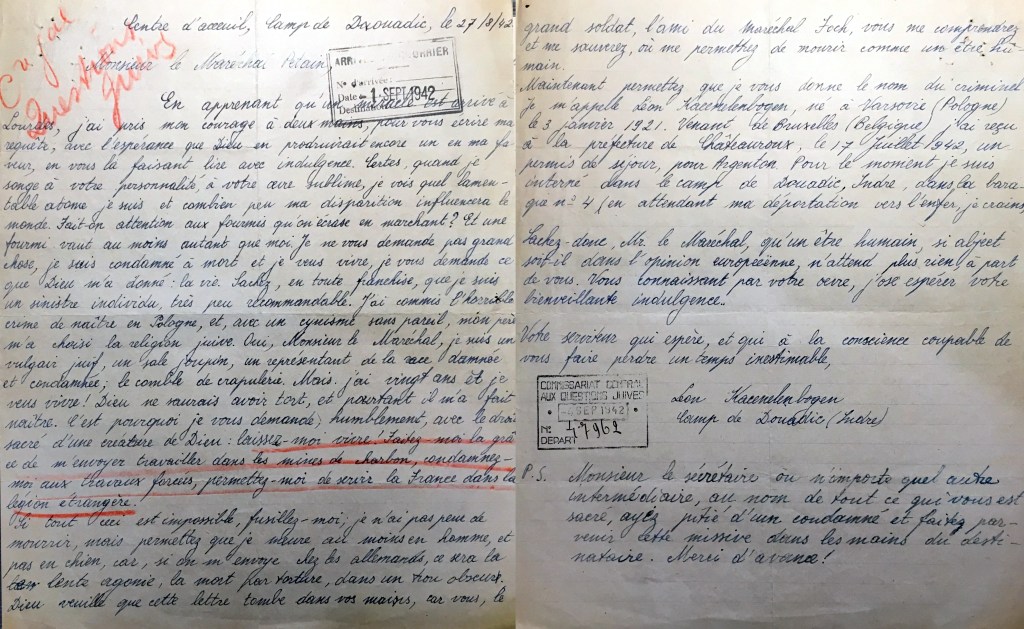 Centre d'acceuil, Camp de Douadic, le 27/8/42
Cujail
Questions
Juives
Monsieur le Maréchal Pétain
ARRIVÉE COURRIER
N° d'arrivée:
Date - 1. SEPT. 1942
Destinataire
En apprenant qu'un miracle est arrivé à
Lourdes, j'ai pris mon courage à deux mains, pour vous écrire ma
requête, avec l'espérance que Dieu en produirait encore un en ma fa-
veur, en vous la faisant lire avec indulgence. Certes, quand je
songe à votre personnalité, à votre œvre sublime, je vois quel lamen-
table atome je suis et combien peu ma disparition influencera le
monde. Fait-on attention aux fourmis qu'on écrase en marchant? Et une
fourmi vaut au moins autant que moi. Je ne vous demande pas grand
chose, je suis condamné à mort et je veux vivre, je vous demande ce
que Dieu m'a donné: la vie. Sachez, en toute franchise, que je suis
un sinistre individu, très peu recommandable. J'ai commis l'horrible
crime de naître en Pologne, et, avec un cynisme sans pareil, mon père
m'a choisi la religion juive. Oui, Monsieur le Maréchal, je suis un
vulgair juif, un sale youpin, un représentant de la race damnée
et condamnée; le comble de crapulerie. Mais.. j'ai vingt ans et je
veux vivre! Dieu ne saurais avoir tort, et pourtant il m'a fait
naître. C'est pourquoi je vous demande, humblement, avec le droit
sacré d'une créature de Dieu: laissez-moi vivre. Faites-moi la grâ-
ce de m'envoyer travailler dans les mines de charbon, condamnez-
moi aux travaux forcés, permettez-moi de servir la France dans la
légion étrangère.
Si tout ceci est impossible, fusillez-moi; je n'ai pas peur de
mourrir, mais permettez que je meure au moins en homme, et
pas en chien, car, si on m'envoye chez les allemands, ce sera la
lente agonie, la mort par torture, dans un trou obscur.
Dieu veuille que cette lettre tombe dans vos mains, car vous, le
grand soldat, l'ami du maréchal Foch, vous me comprendrez
et me sauvrez, où me permettez de mourir comme un être hu-
main.
Maintenant permettez que je vous donne le nom du criminel
Je m'appelle Léon Kacenelenbogen, né à Varsovie (Pologne)
le 3 janvier 1921. Venant de Bruxelles (Belgique) j'ai reçu
à la prefecture de Châteauroux, le 17 Juillet 1942, un
permis de séjour, pour Argenton. Pour le moment je suis
interné dans le camp de Douadic, Indre, dans la bara-
que n° 4 (en attendant ma déportation vers l'enfer, je crains)
Sachez-donc, Mr. le Maréchal, qu'un être humain, si abject
soit-il dans l'opinion européenne, n'attend plus rien, à part
de vous. Vous connaissant par votre œvre, j'ose espérer votre
bienveillante indulgence..
Votre serviteur qui espère, et qui a la conscience coupable de
vous faire perdre un temps inestimable,
COMMISSARIAT GENERAL
AUX QUESTIONS JUIVES
SEP 1942
N° 47962
DEPART
Léon Kacenelenbogen
Camp de Douadic (Indre)
P.S. Monsieur le sécrétaire ou n'importe quel autre
intermédiaire, au nom de tout ce qui vous est
sacré, ayez pitié d'un condamné et faites par-
venir cette missive dans les mains du desti-
nataire. Merci d'avance!